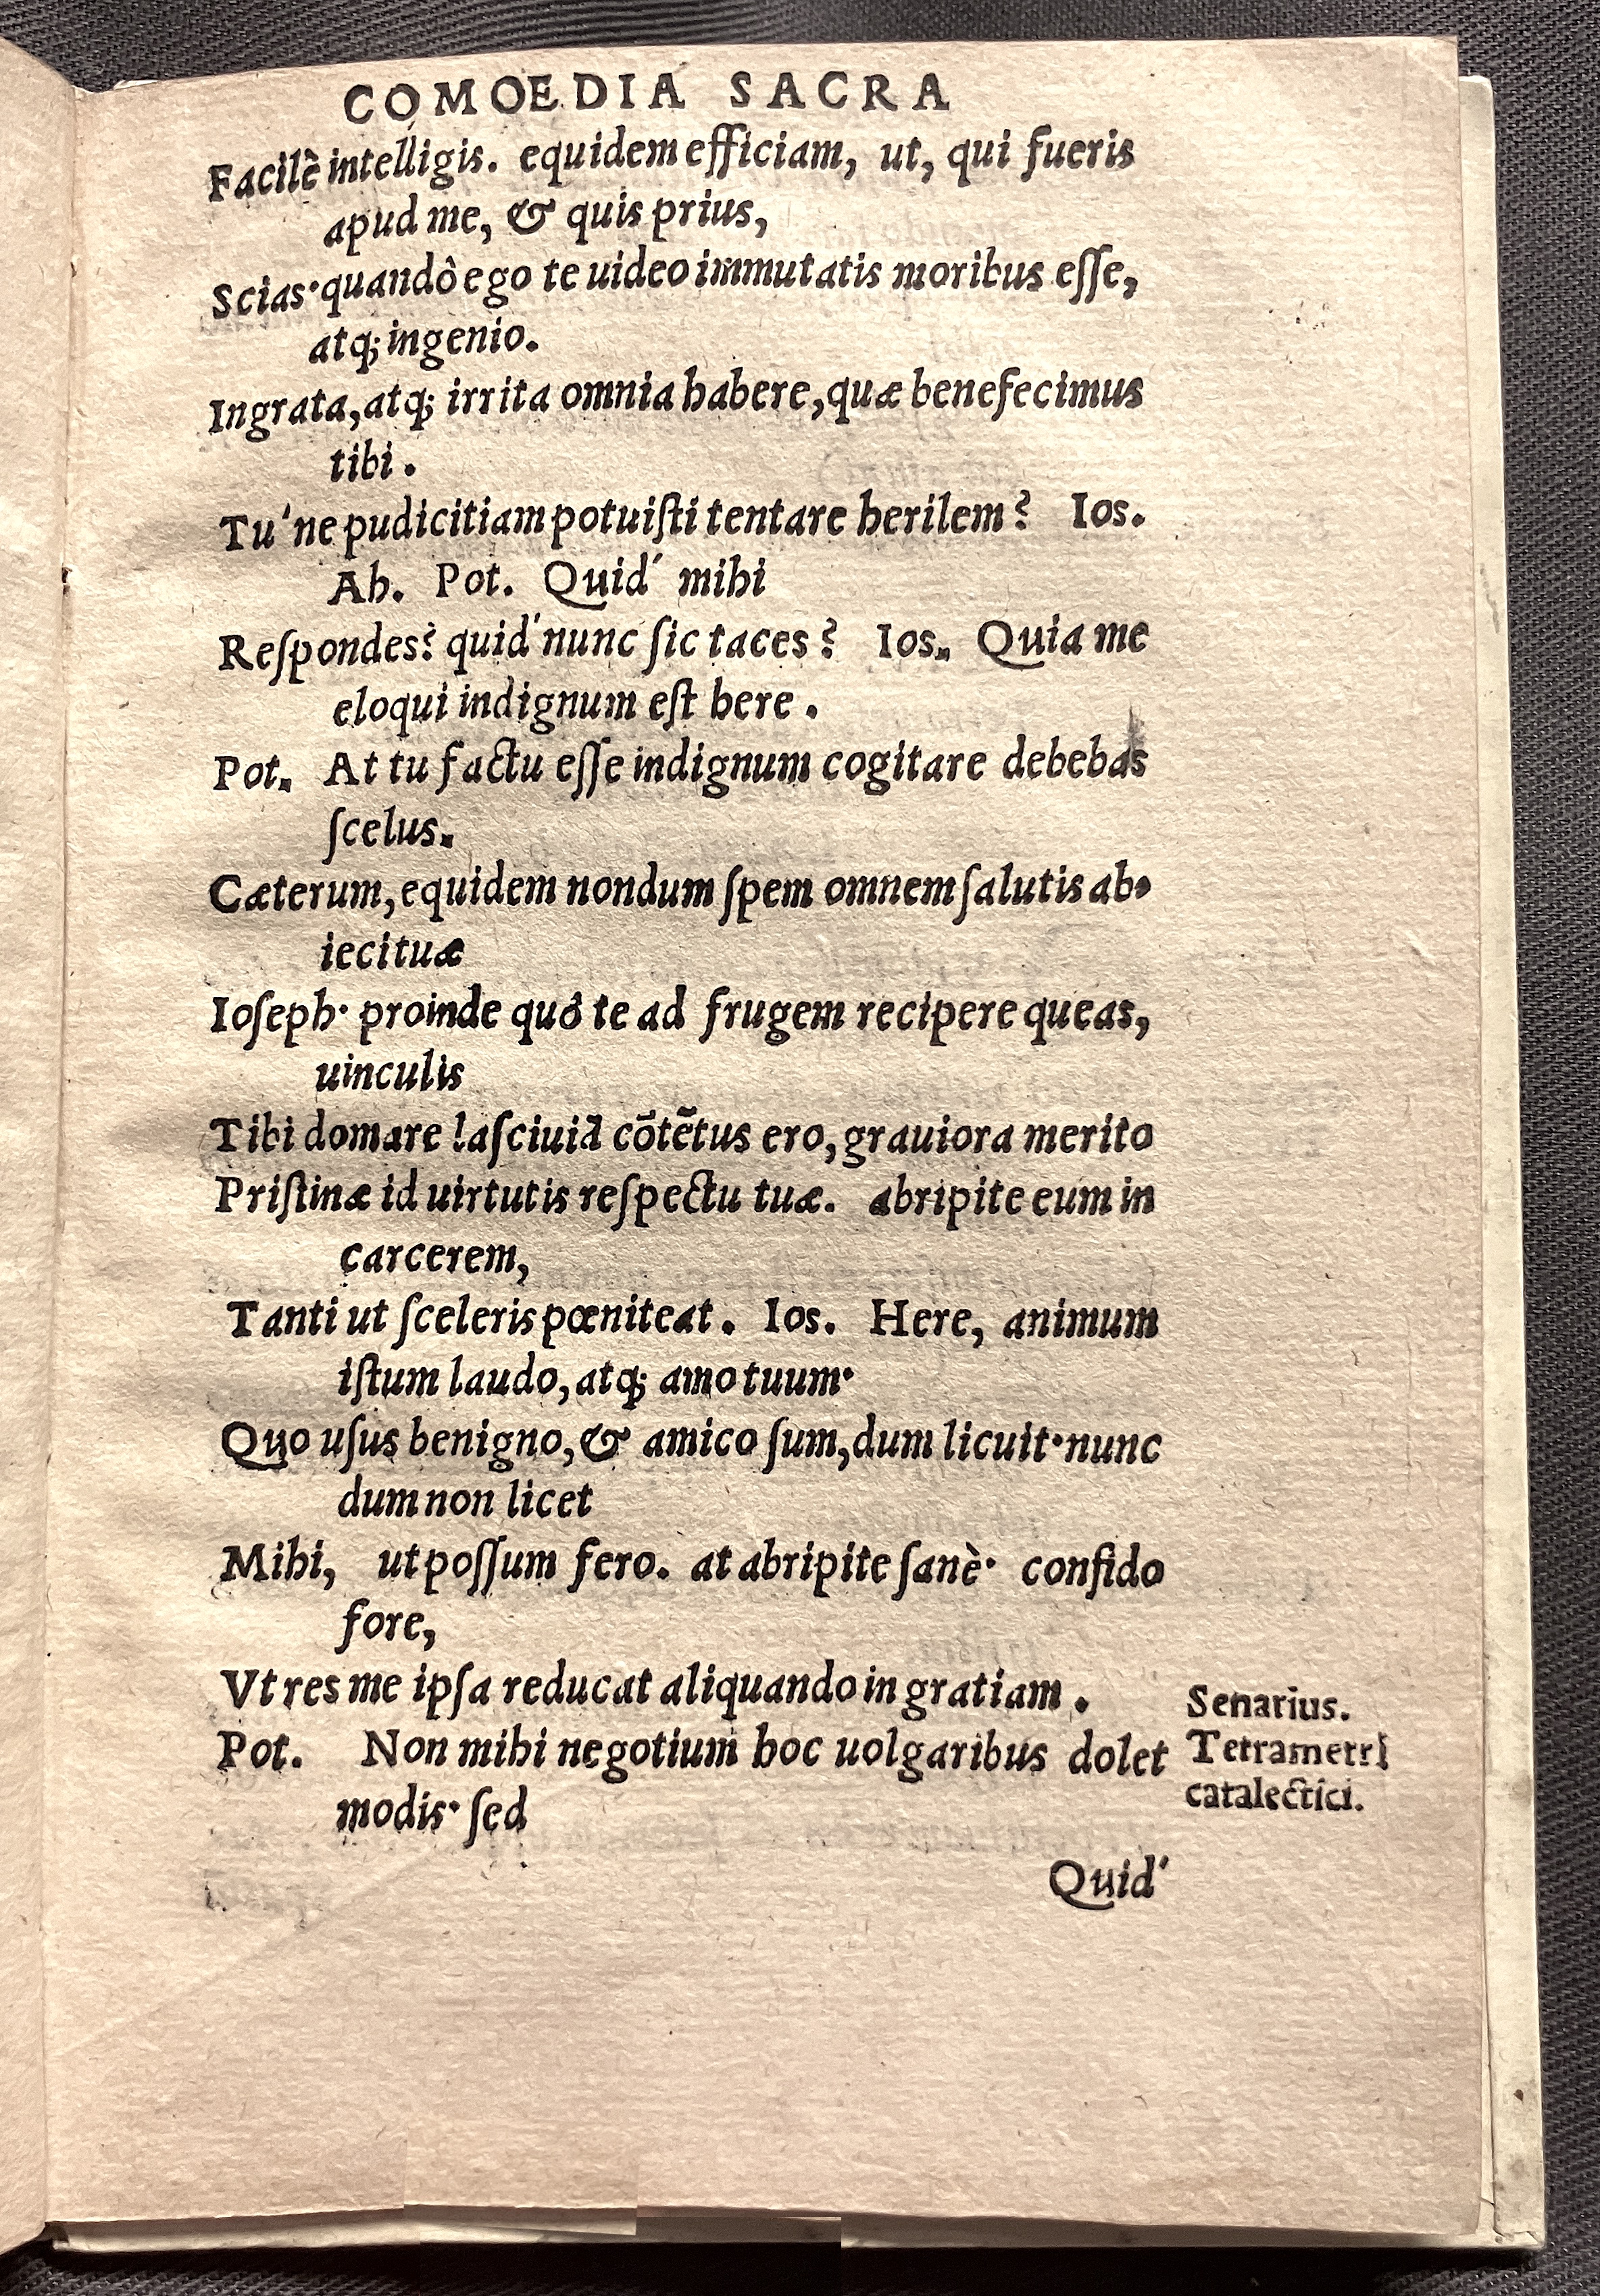 COMOEDIA SACRA
Facilè intelligis. equidem efficiam, ut, qui fueris
apud me, & quis prius,
Scias· quandô ego te uideo immutatis moribus eſſe,
atq; ingenio.
Ingrata, atq; irrita omnia habere, quæ benefecimus
tibi.
Tu'ne pudicitiam potuiſti tentare herilem? Ios.
Ah. Pot. Quid' mihi
Reſpondes? quid' nunc ſic taces? Ios. Quia me
eloqui indignum eſt here.
Pot. At tu factu eſſe indignum cogitare debebas
ſcelus.
Cæterum, equidem nondum ſpem omnem ſalutis ab-
ieci tuæ
Ioſeph· proinde quó te ad frugem recipere queas,
uinculis
Tibi domare laſciuiã cōtētus ero, grauiora merito
Priſtinæ id uirtutis reſpectu tuæ. abripite eum in
carcerem,
Tanti ut ſceleris pœniteat. Ios. Here, animum
iſtum laudo, atq; amo tuum·
Quo uſus benigno, & amico ſum, dum licuit· nunc
dum non licet
Mihi, ut poſſum fero. at abripite ſanè· confido
fore,
Vt res me ipſa reducat aliquando in gratiam.
Senarius.
Pot. Non mihi negotium hoc uolgaribus dolet
Tetrametri
modis· ſed
catalectici.
Quid'